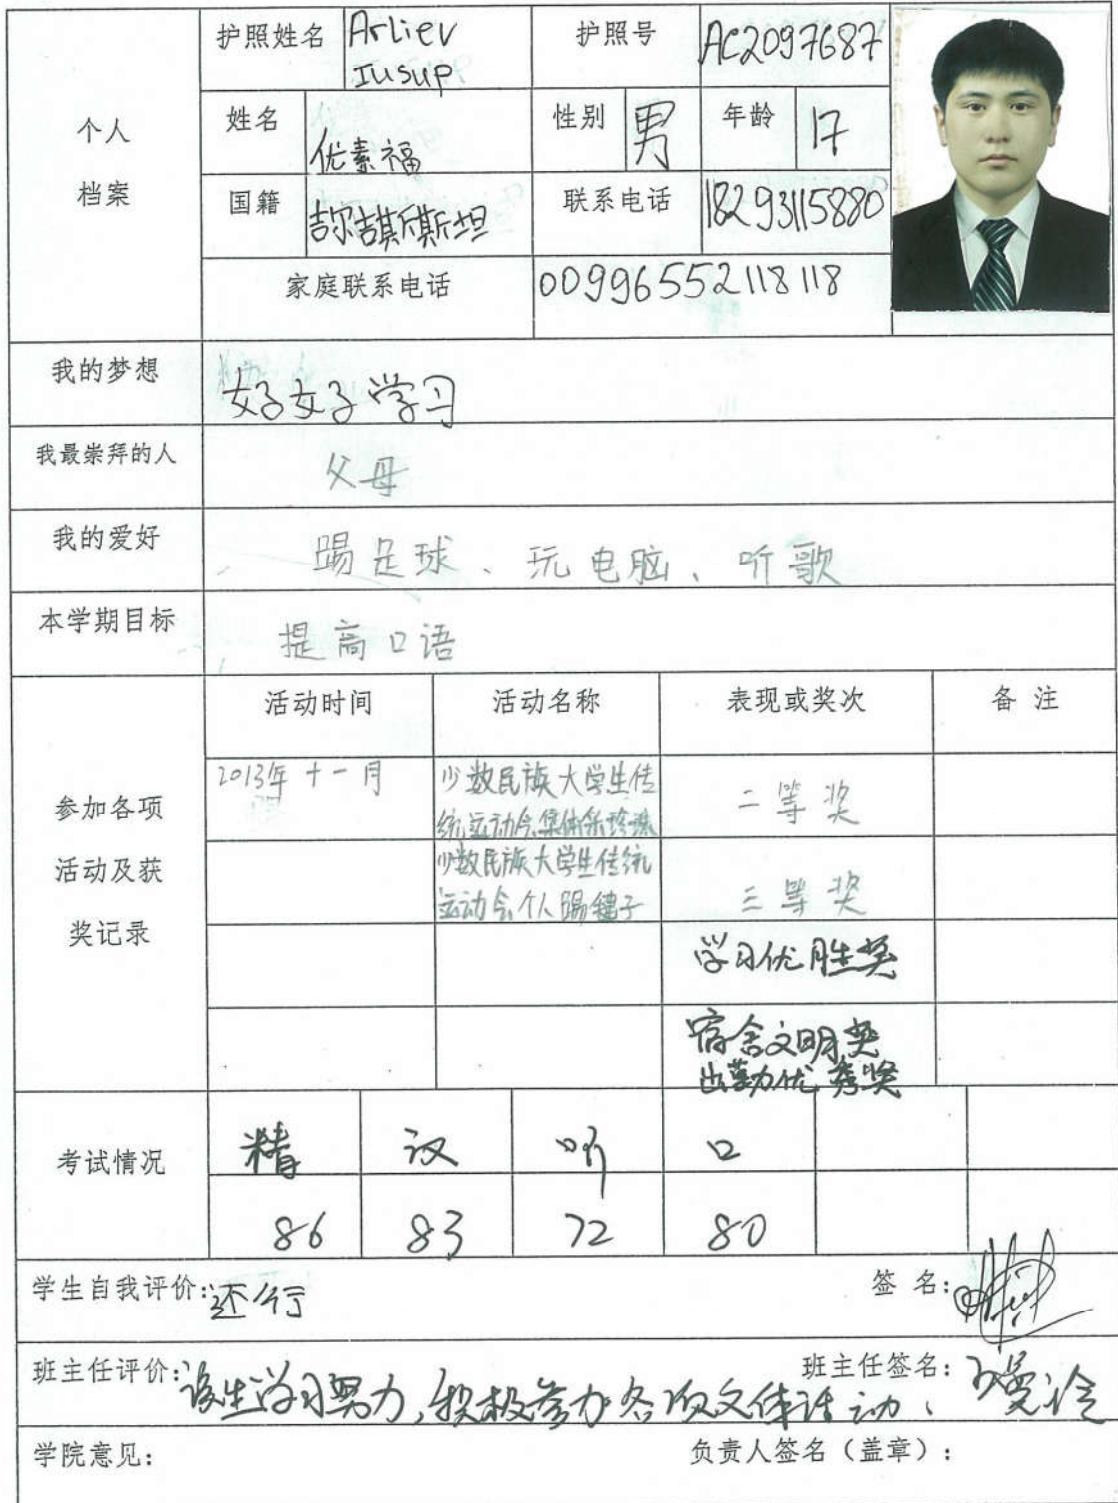 个人
档案
护照姓名 Arliev
Iusup
护照号 AC2097687
姓名 优素福
性别 男
年龄 17
国籍 吉尔吉斯斯坦
联系电话 18293115880
家庭联系电话 00996552118118
我的梦想 好好学习
我最崇拜的人 父母
我的爱好 踢足球、玩电脑、听歌
本学期目标 提高口语
参加各项
活动及获
奖记录
活动时间 活动名称 表现或奖次 备 注
2013年十一月 少数民族大学生传
统运动会集体采珍珠 二等奖
少数民族大学生传统
运动会个人踢毽子 三等奖
学习优胜奖
宿舍文明奖
出勤优秀奖
考试情况
精 汉 听 口
86 83 72 80
学生自我评价:还行 签 名:
班主任评价:该生学习努力,积极参加各项文体活动、 班主任签名:
学院意见: 负责人签名(盖章):